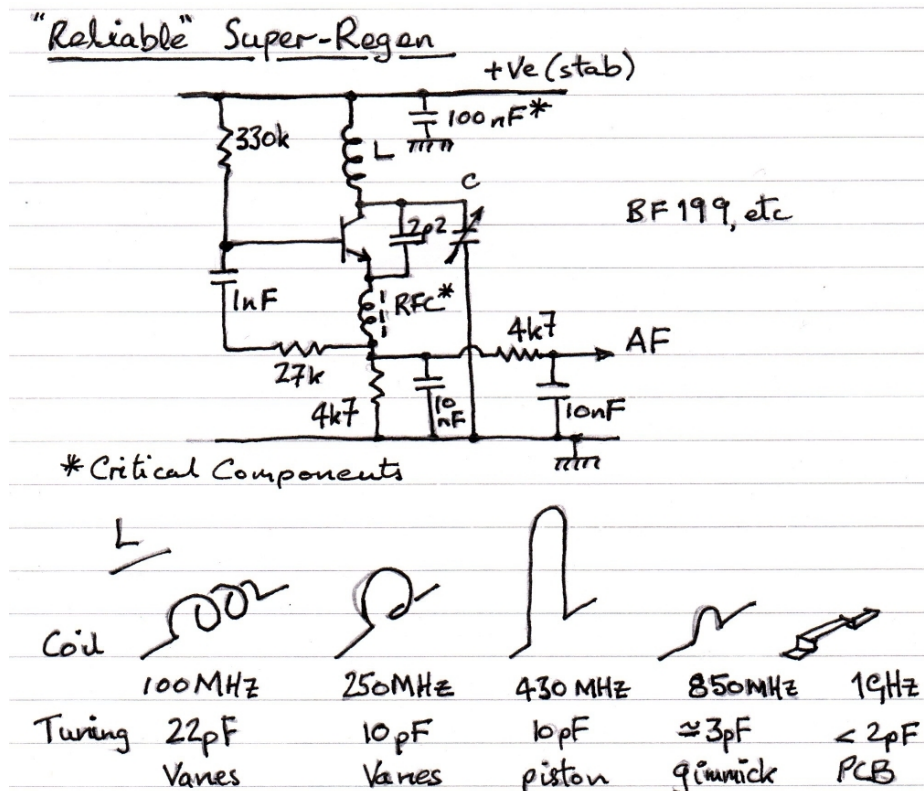 "Reliable" Super-Regen
+Ve (stab)
330k
100nF*
L
C
2p2
BF199, etc
1nF
RFC*
4k7
AF
27k
4k7
10
nF
10nF
* Critical Components
L
Coil
100MHz 250MHz 430MHz 850MHz 1GHz
Tuning 22pF 10pF 10pF ≈3pF < 2pF
Vanes Vanes piston gimmick PCB